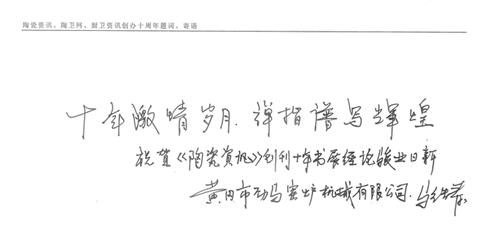 陶瓷资讯、陶卫网、厨卫资讯创办十周年题词、寄语
十年激情岁月.弹指谱写辉煌
祝贺《陶瓷资讯》创刊十年书展经论敬业日新
黄冈市劲马窑炉机械有限公司.